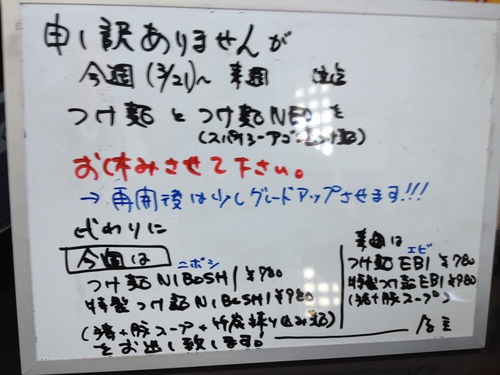 申し訳ありませんが
今週(3/21)〜来週
つけ麺とつけ麺NEOを
(スパイシーアゴ
お休みさせて下さい。
→再開後は少しグレードアップさせます!!!
代わりに
今週は
ニボシ
つけ麺NIBOSHI ¥780
特盤つけ麺NIBOSHI ¥980
(鶏+豚スープ+
をお出し致します。
来週は
エビ
つけ麺EBI ¥780
特盤つけ麺EBI ¥980
(鶏+豚スープ)
店主